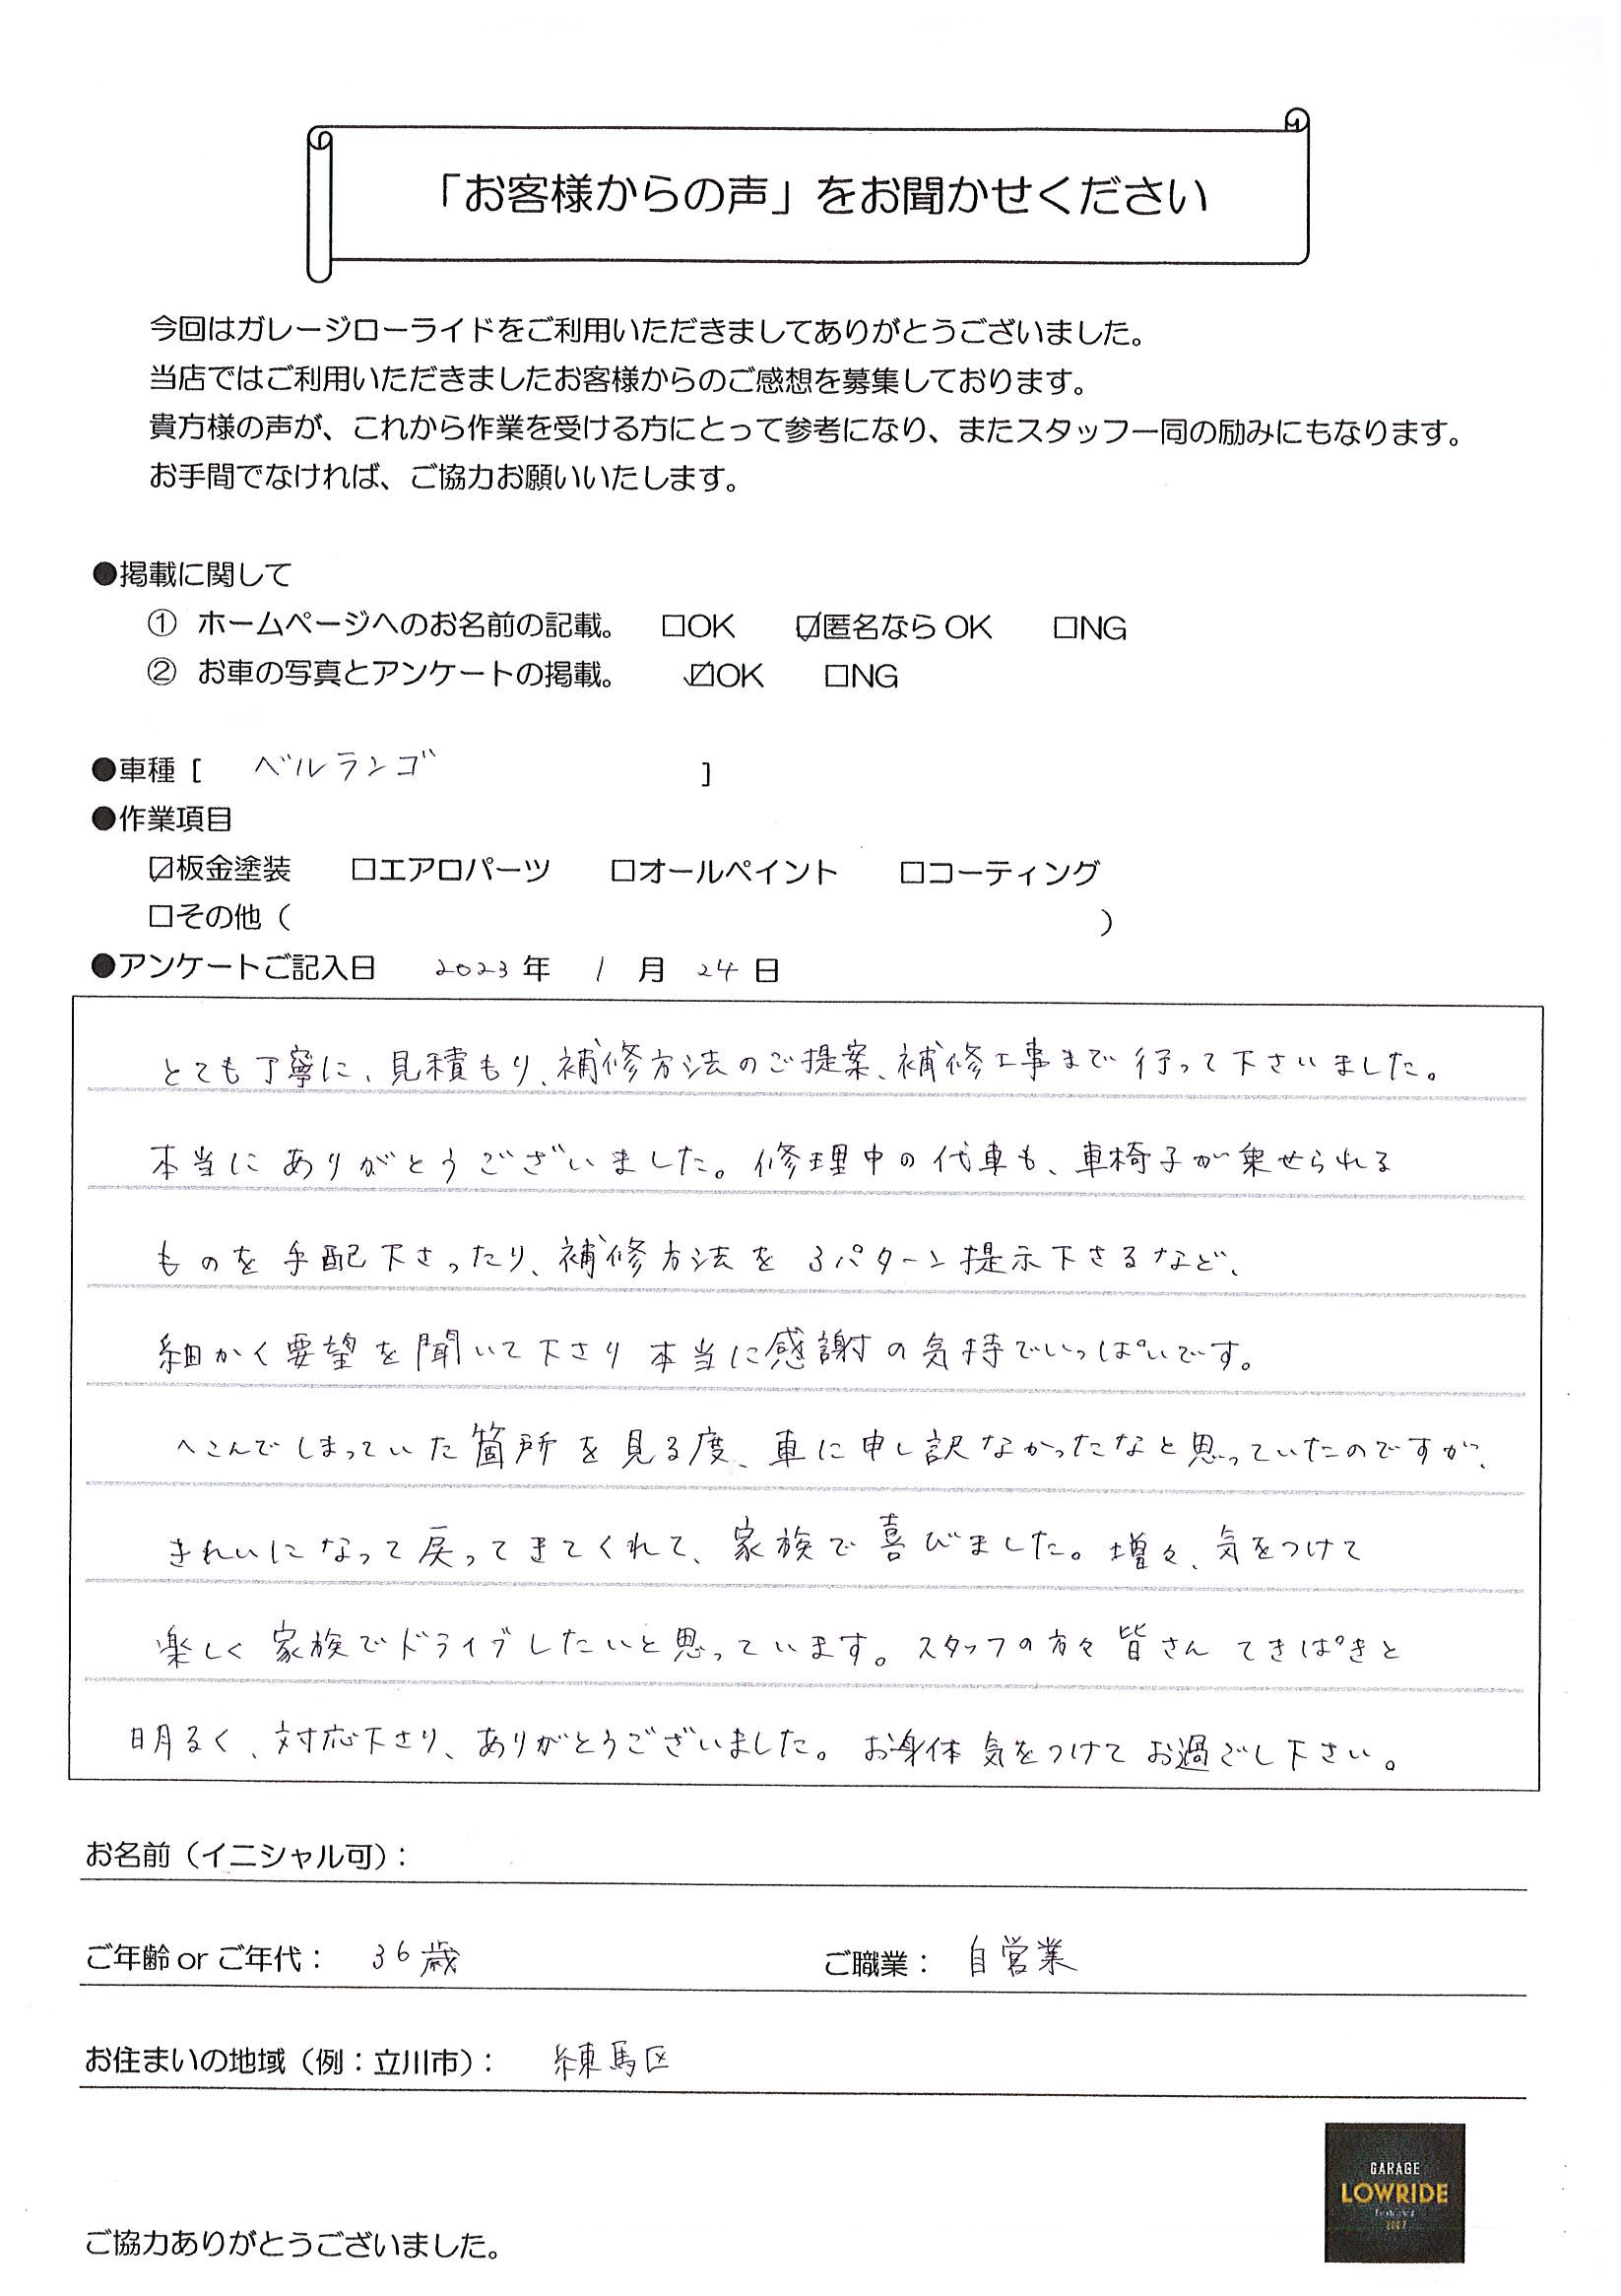 「お客様からの声」をお聞かせください
今回はガレージローライドをご利用いただきましてありがとうございました。
当店ではご利用いただきましたお客様からのご感想を募集しております。
貴方様の声が、これから作業を受ける方にとって参考になり、またスタッフ一同の励みにもなります。
お手間でなければ、ご協力お願いいたします。
●掲載に関して
① ホームページへのお名前の記載。 □OK ☑匿名なら OK □NG
② お車の写真とアンケートの掲載。 ☑OK □NG
●車種 [ ベルランゴ ]
●作業項目
☑板金塗装 □エアロパーツ □オールペイント □コーティング
□その他（ ）
●アンケートご記入日 2023 年 1 月 24 日
とても丁寧に、見積もり、補修方法のご提案、補修工事まで行って下さいました。
本当にありがとうございました。修理中の代車も、車椅子が乗せられる
ものを手配下さったり、補修方法を3パターン提示下さるなど、
細かく要望を聞いて下さり本当に感謝の気持でいっぱいです。
へこんでしまっていた箇所を見る度、車に申し訳なかったなと思っていたのですが、
きれいになって戻ってきてくれて、家族で喜びました。増々、気をつけて
楽しく家族でドライブしたいと思っています。スタッフの方々皆さんてきぱきと
明るく、対応下さり、ありがとうございました。お身体気をつけてお過ごし下さい。
お名前（イニシャル可）：
ご年齢 or ご年代： 36歳 ご職業： 自営業
お住まいの地域（例：立川市）： 練馬区
GARAGE
LOWRIDE
2007
ご協力ありがとうございました。